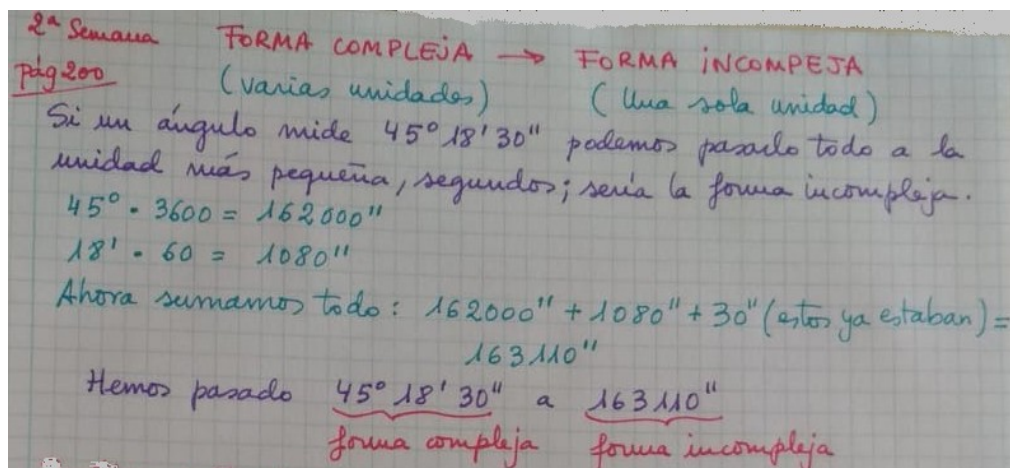 2ª Semana FORMA COMPLEJA → FORMA INCOMPEJA
pág 200 (varias unidades) (Una sola unidad)
Si un ángulo mide 45° 18' 30" podemos pasarlo todo a la
unidad más pequeña, segundos; sería la forma incompleja.
45° · 3600 = 162000"
18' · 60 = 1080"
Ahora sumamos todo: 162000" + 1080" + 30" (estos ya estaban) =
163110"
Hemos pasado 45° 18' 30" a 163110"
forma compleja forma incompleja